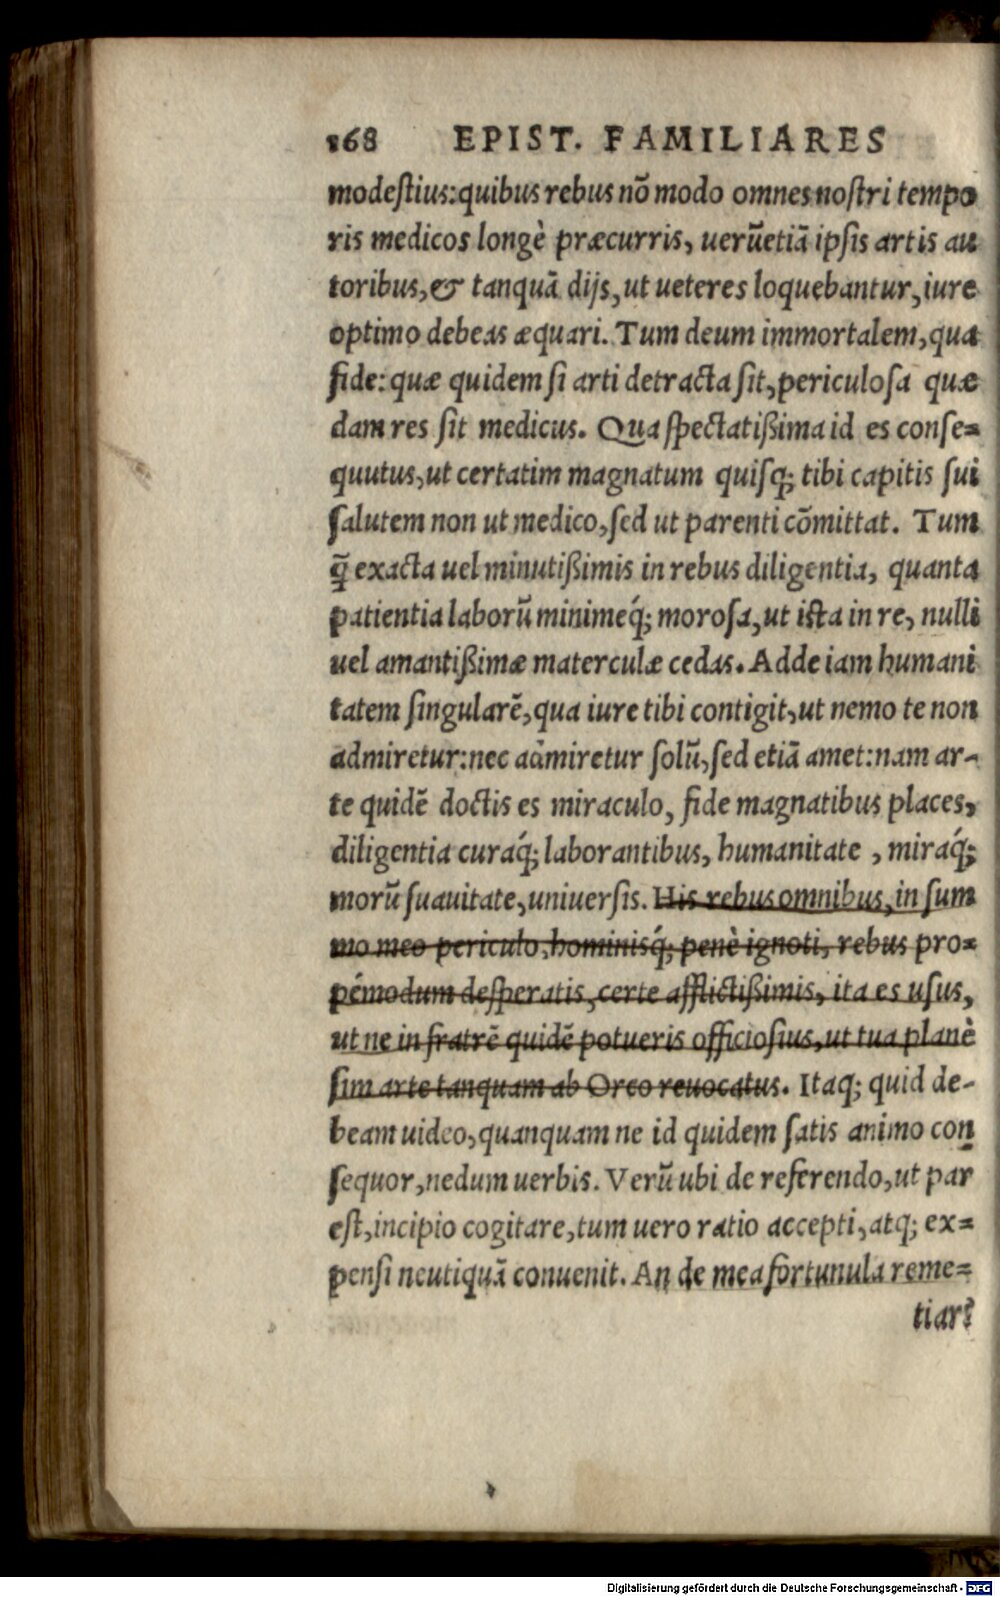 168 EPIST. FAMILIARES
modestius: quibus rebus nõ modo omnes nostri tempo
ris medicos longè præcurris, uerũetiã ipsis artis au
toribus, & tanquã dijs, ut ueteres loquebantur, iure
optimo debeas æquari. Tum deum immortalem, qua
fide: quæ quidem si arti detracta sit, periculosa quæ
dam res sit medicus. Qua spectatißima id es conse=
quutus, ut certatim magnatum quisq; tibi capitis sui
salutem non ut medico, sed ut parenti cõmittat. Tum
q̃ exacta uel minutißimis in rebus diligentia, quanta
patientia laborũ minimeq́; morosa, ut ista in re, nulli
uel amantißimæ materculæ cedas. Adde iam humani
tatem singularẽ, qua iure tibi contigit, ut nemo te non
admiretur: nec admiretur solũ, sed etiã amet: nam ar-
te quidẽ doctis es miraculo, fide magnatibus places,
diligentia curaq́; laborantibus, humanitate , miraq́;
morũ suauitate, uniuersis. His rebus omnibus, in sum
mo meo periculo, hominisq́; penè ignoti, rebus pro=
pémodum desperatis, certe afflictißimis, ita es usus,
ut ne in fratrẽ quidẽ potueris officiosius, ut tua planè
sim arte tanquam ab Orco reuocatus. Itaq; quid de-
beam uideo, quanquam ne id quidem satis animo con
sequor, nedum uerbis. Verũ ubi de referendo, ut par
est, incipio cogitare, tum uero ratio accepti, atq; ex=
pensi neutiquã conuenit. An de mea fortunula reme=
tiar?
Digitalisierung gefördert durch die Deutsche Forschungsgemeinschaft - DFG